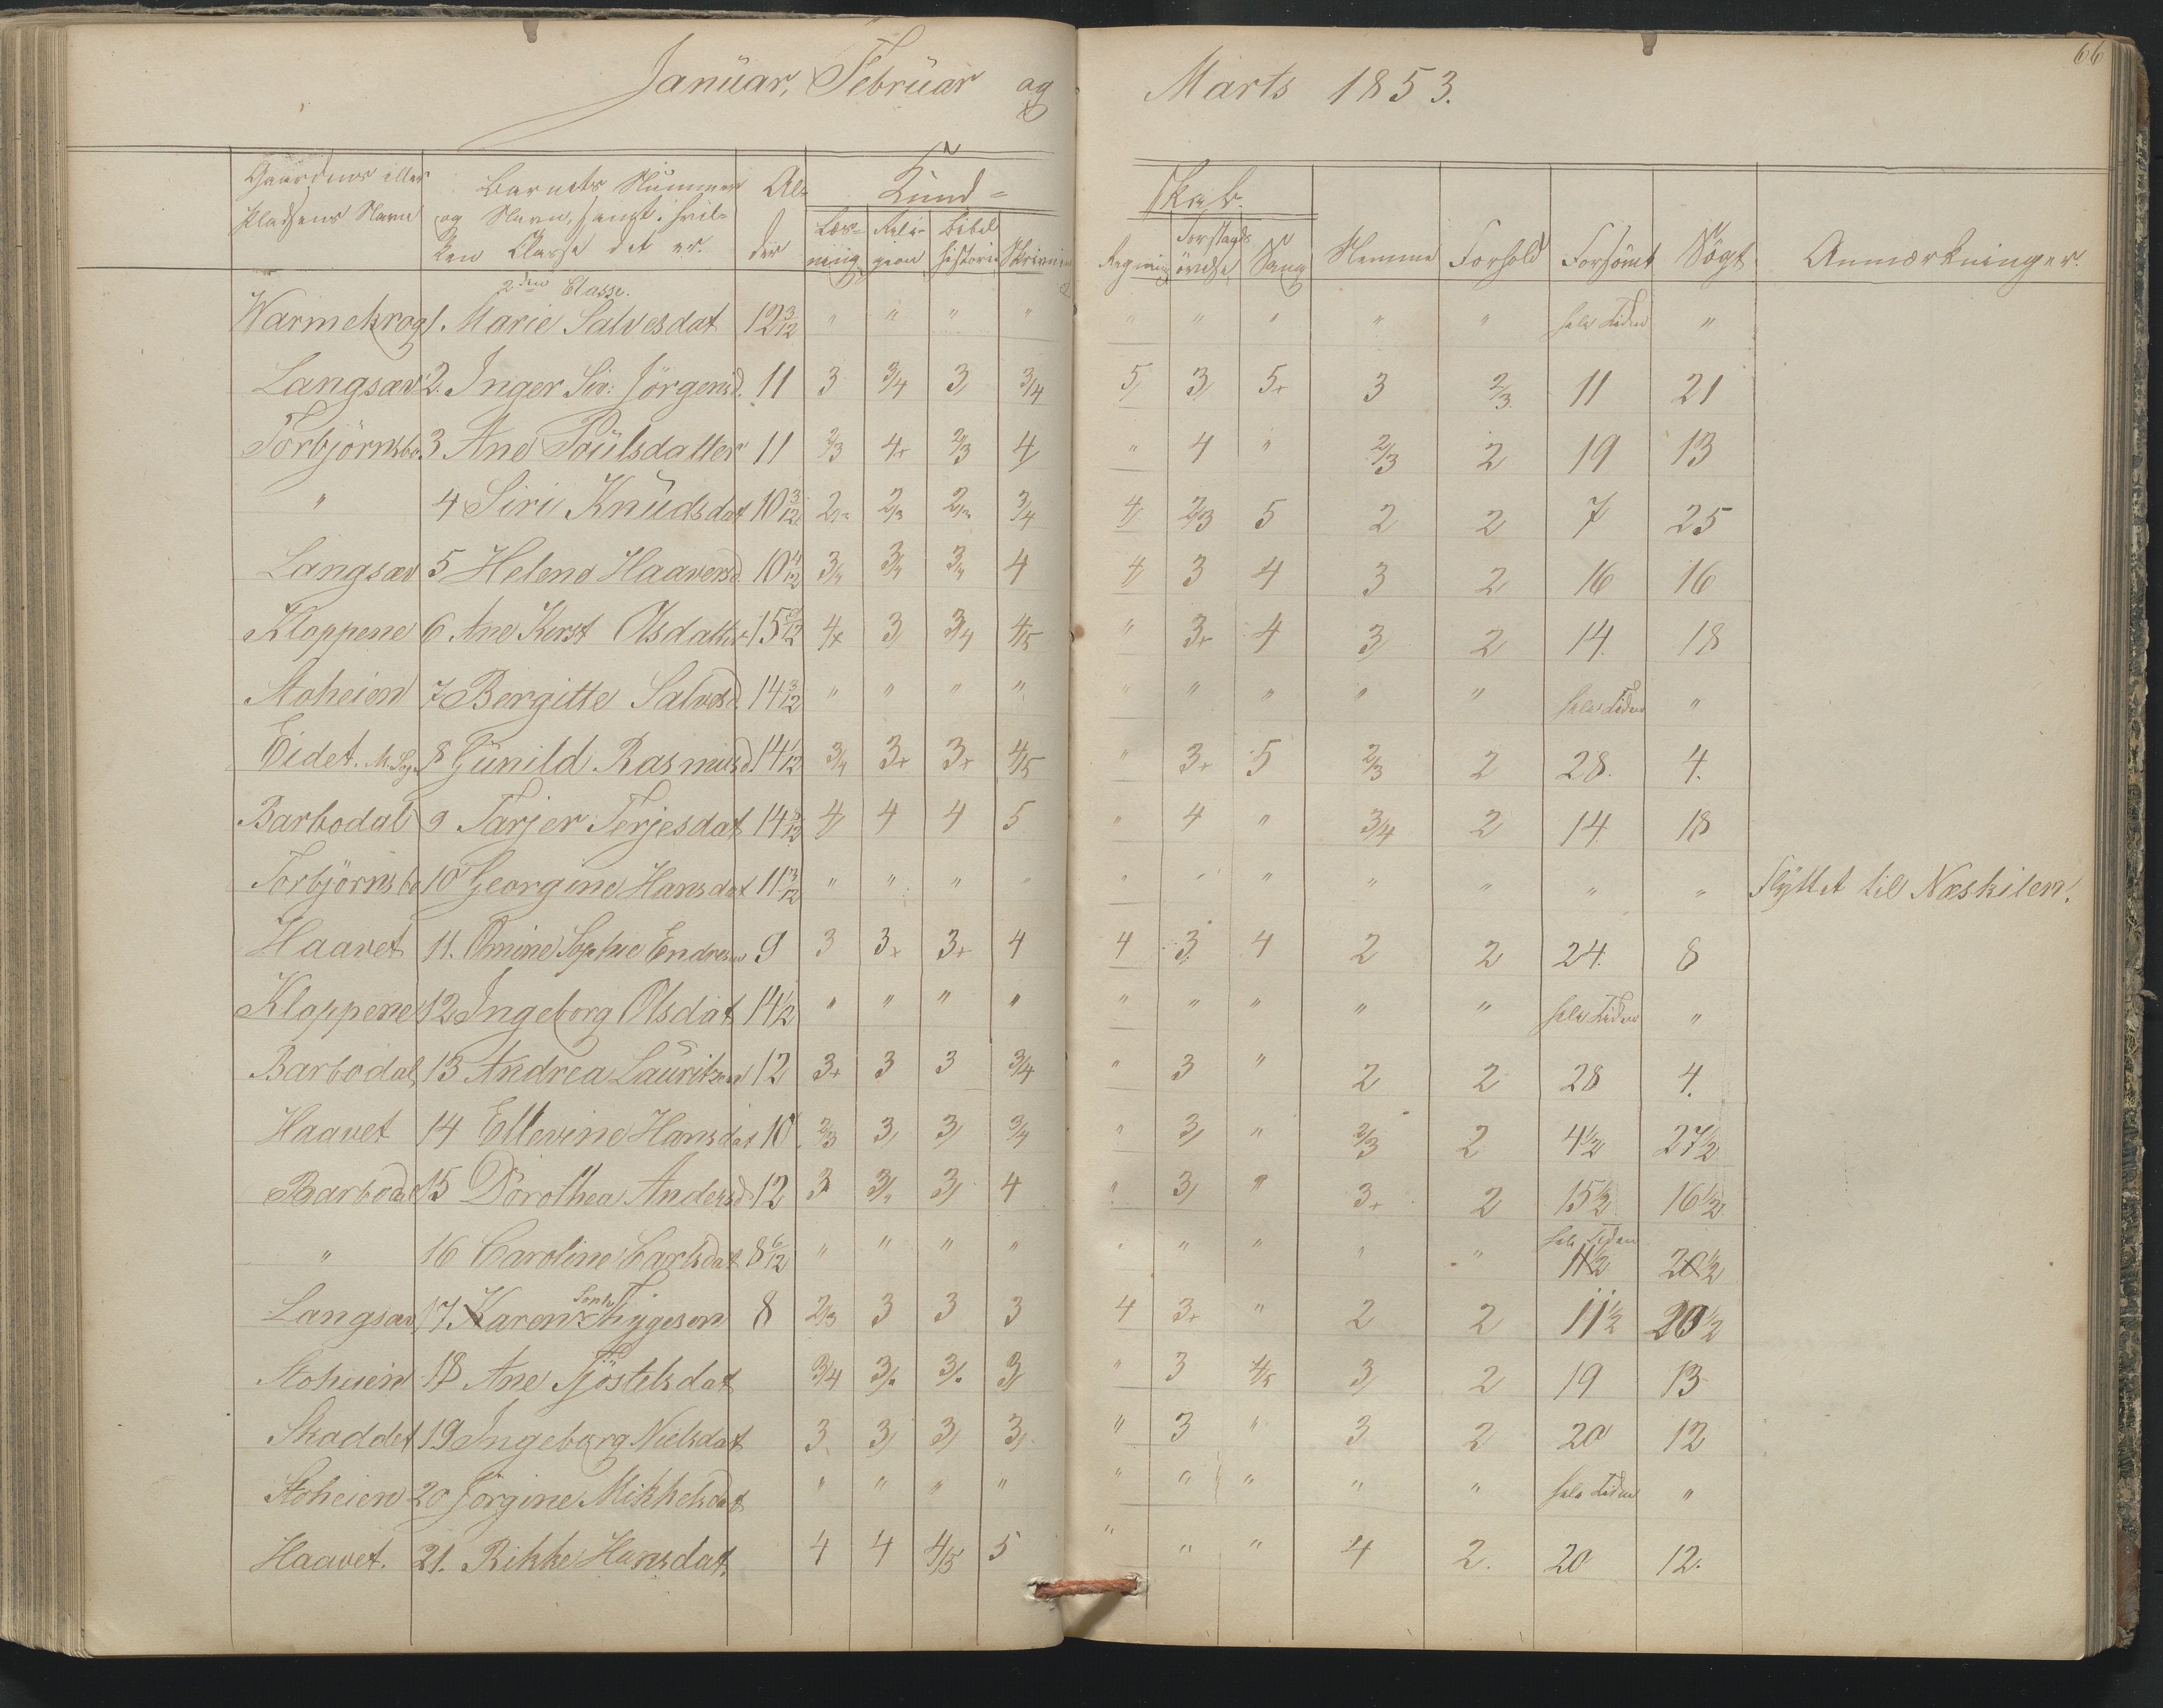 66
Januar, Februar og Marts 1853.
Gaardens eller Pladsens Navn | Barnets Nummer og Navn, samt i hvilken Classe det er. | Alder | Kundskab. | Nemme | Forhold | Forsömt | Sögt | Anmærkninger.
Læsning | Religion | Bibelhistorie | Skrivning | Regning | Forstandsövelse | Sang
2den Classe.
Warmekrog 1. Marie Salvesdat 12 3/12 " " " " " " " " " hele Tiden "
Langsæv 2. Inger Jörgensd. 11 3 3/4 3 3/4 5 3 5+ 3 2/3 11 21
Torbjörnsbo 3 Ane Poulsdatter 11 2/3 4+ 2/3 4 " 4 " 2/3 2 19 13
" 4 Siri Knudsdat 10 3/12 2/3 2/3 2/3 3/4 4 2/3 5 2 2 7 25
Langsæv 5 Helene Haaversd 10 4/12 3/4 3/4 3/4 4 4 3 4 3 2 16 16
Kloppene 6 Ane Kirst Olsdatter 15 4+ 3 3/4 4/5 " 3+ 4 3 2 14. 18
Stoheien 7 Bergitte Salvesd 14 3/12 " " " " " " " " " hele Tiden "
Eidet. 8 Gunild Rasmusd 14 1/2 3/4 3+ 3+ 4/5 " 3+ 5 2/3 2 28. 4.
Barbodal 9 Tarjer Terjesdat 14 4 4 4 5 " 4 " 3/4 2 14. 18
Torbjörnsbo 10 Georgine Hansdat 11 3/12 " " " " " " " " " " " Flyttet til Næskilen.
Haavet 11. Omine Sophie Endresen 9 3 3+ 3+ 4 4 3 4 2 2 24. 8
Kloppene 12 Ingeborg Olsdat 14 1/2 " " " " " " " " " hele Tiden "
Barbodal 13 Andrea Lauritzen 12 3+ 3 3 3/4 " 3 " 2 2 28 4.
Haavet 14 Ellevine Hansdat 10 2/3 3 3 3/4 " 3 " 2/3 2 4 1/2 27 1/2
Barbodal 15 Dorothea Andersd 12 3 3/4 3 4 " 3 " 3+ 2 15 1/2 16 1/2
" 16 Caroline Carlsdat 8 6/12 " " " " " " " " " hele Tiden 11 1/2 20 1/2
Langsæv 17. Karen Soph Thygesen 8 2/3 3 3 3 4 3+ " 2 2 11 1/2 20 1/2
Stoheien 18 Ane Tjöstelsdat 3/4 3 3 3 " 3 4/5 3 2 19 13
Skoddet 19 Ingeborg Nielsdat 3 3 3 3 " 3 " 3 2 20 12
Stoheien 20 Jörgine Mikkelsdat " " " " " " " " " hele Tiden "
Haavet. 21. Rikke Hansdat. 4 4 4/5 5 " " " 4 2. 20 12.